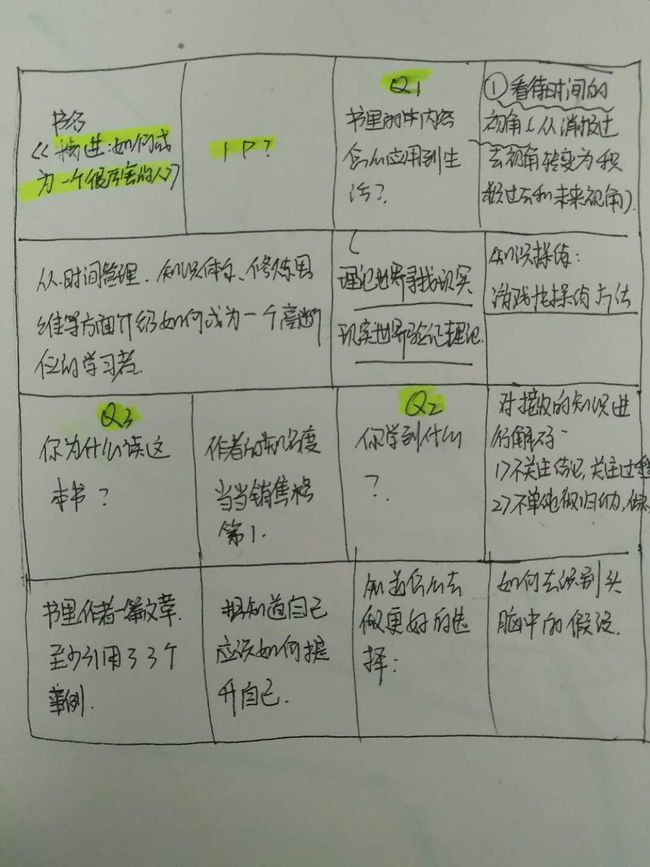 书名
《精进:如何成
为一个很厉害的人》
1P?
Q1
书里的内容
怎么应用到生
活?
①看待时间的
视角(从消极过
去视角转变为积
极过去和未来视角)
从时间管理、知识体系、修炼思
维等方面介绍如何成为一个高断
位的学习者.
理论世界寻找现实
现实世界验证理论.
知识操偱:
游戏化操偱方法
Q3
你为什么读这
本书?
作者的知名度
当当销售榜
第1.
Q2
你学到什么
?
对接收的知识进
行解码-
1)不关注结论,关注过程
2)不单纯做归纳,做
书里作者一篇文章.
至少引用了3个
事例.
想知道自己
应该如何提
升自己.
知道怎么去
做更好的选
择;
如何去识别头
脑中的假设.